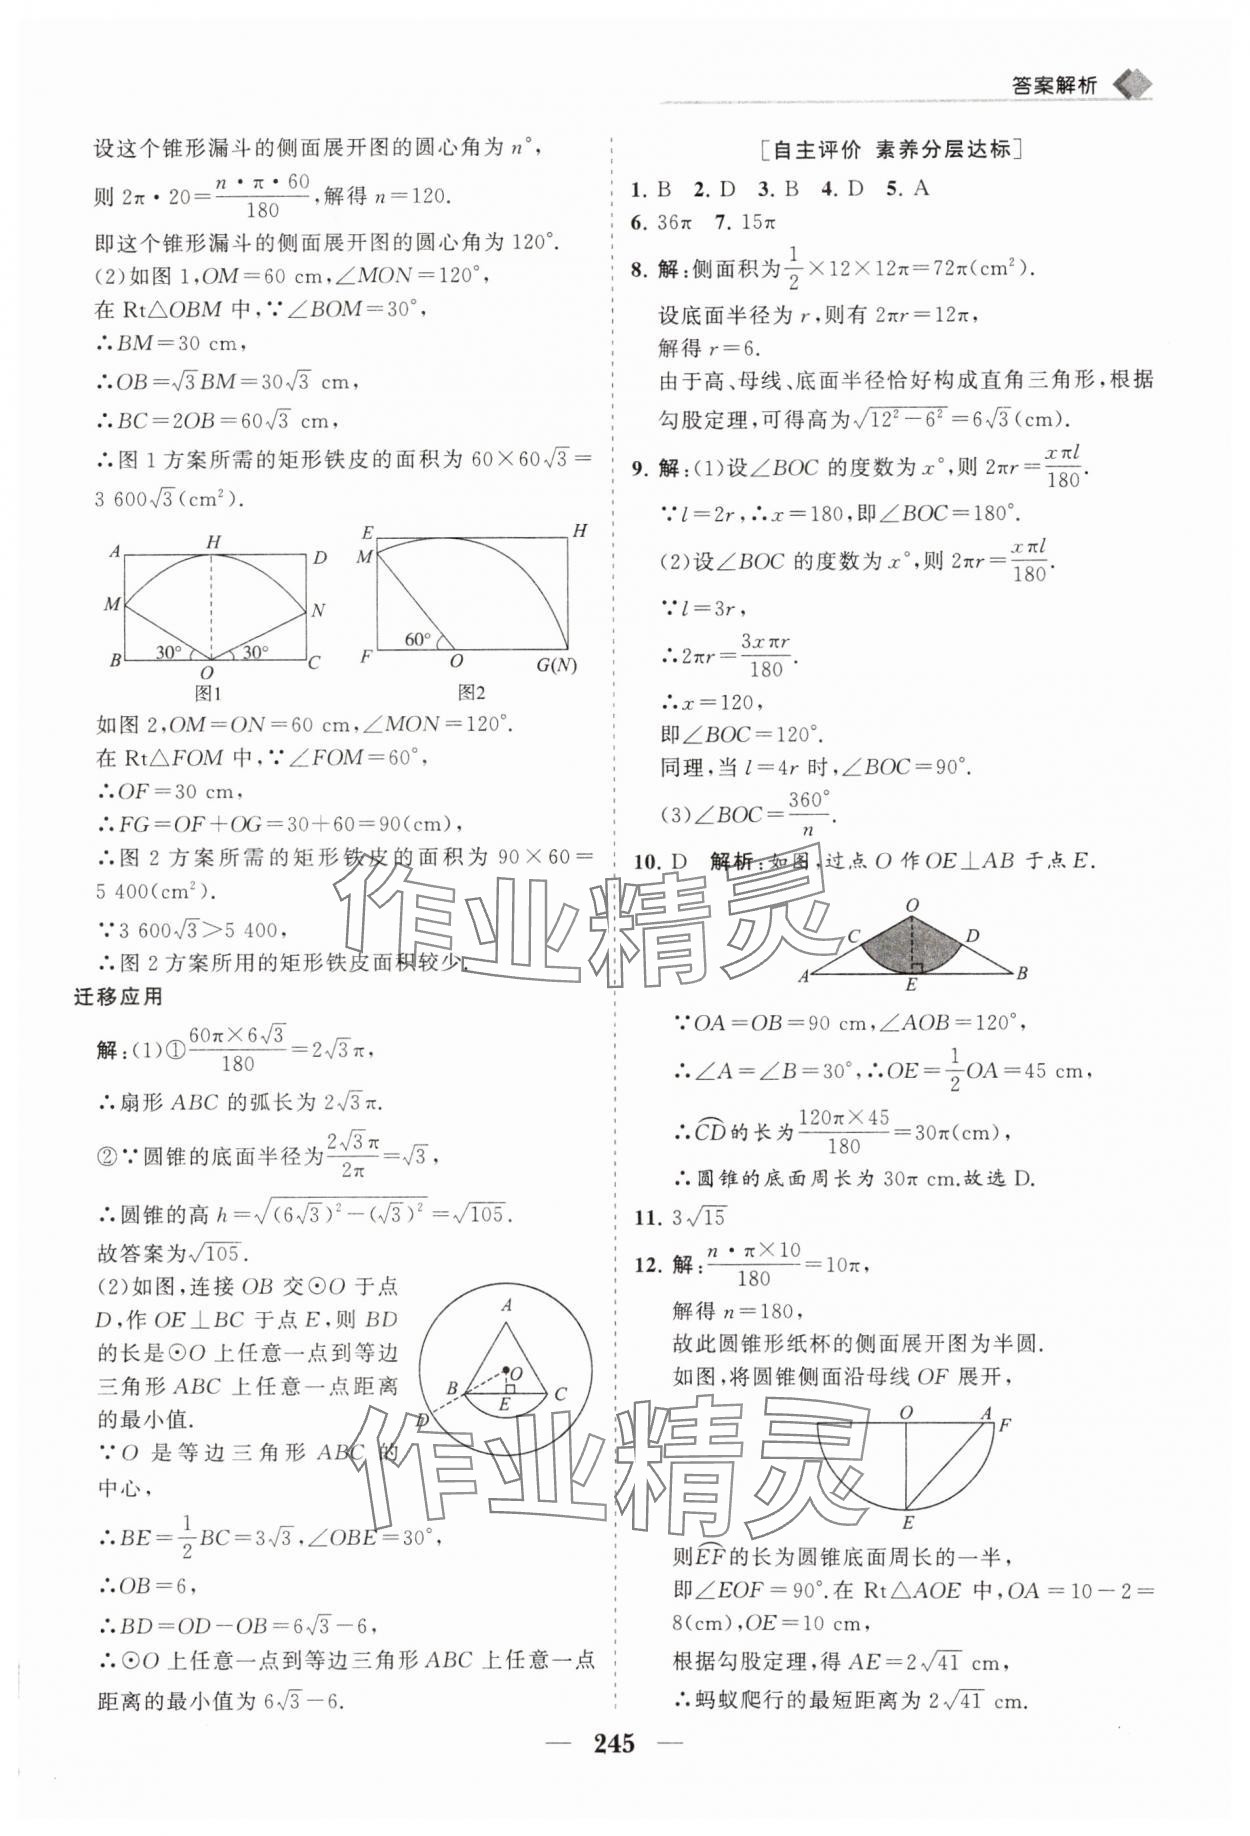 答案解析
设这个锥形漏斗的侧面展开图的圆心角为 n°,
则 2π·20=n·π·60/180,解得 n=120.
即这个锥形漏斗的侧面展开图的圆心角为 120°.
(2)如图 1,OM=60 cm,∠MON=120°,
在 Rt△OBM 中,∵∠BOM=30°,
∴BM=30 cm,
∴OB=√3BM=30√3 cm,
∴BC=2OB=60√3 cm,
∴图 1 方案所需的矩形铁皮的面积为 60×60√3=
3 600√3(cm²).
A H D
M N
B 30° O 30° C
图1
E H
M
60°
F O G(N)
图2
如图 2,OM=ON=60 cm,∠MON=120°.
在 Rt△FOM 中,∵∠FOM=60°,
∴OF=30 cm,
∴FG=OF+OG=30+60=90(cm),
∴图 2 方案所需的矩形铁皮的面积为 90×60=
5 400(cm²).
∵3 600√3>5 400,
∴图 2 方案所用的矩形铁皮面积较少.
迁移应用
解:(1)①60π×6√3/180=2√3π,
∴扇形 ABC 的弧长为 2√3π.
②∵圆锥的底面半径为2√3π/2π=√3,
∴圆锥的高 h=√((6√3)²-(√3)²)=√105.
故答案为√105.
(2)如图,连接 OB 交⊙O 于点
D,作 OE⊥BC 于点 E,则 BD
的长是⊙O 上任意一点到等边
三角形 ABC 上任意一点距离
的最小值.
∵O 是等边三角形 ABC 的
中心,
A
O
B E C
D
∴BE=1/2BC=3√3,∠OBE=30°,
∴OB=6,
∴BD=OD-OB=6√3-6,
∴⊙O 上任意一点到等边三角形 ABC 上任意一点
距离的最小值为 6√3-6.
[自主评价 素养分层达标]
1. B 2. D 3. B 4. D 5. A
6. 36π 7. 15π
8. 解:侧面积为1/2×12×12π=72π(cm²).
设底面半径为 r,则有 2πr=12π,
解得 r=6.
由于高、母线、底面半径恰好构成直角三角形,根据
勾股定理,可得高为√(12²-6²)=6√3(cm).
9. 解:(1)设∠BOC 的度数为 x°,则 2πr=xπl/180.
∵l=2r,∴x=180,即∠BOC=180°.
(2)设∠BOC 的度数为 x°,则 2πr=xπl/180.
∵l=3r,
∴2πr=3xπr/180.
∴x=120,
即∠BOC=120°.
同理,当 l=4r 时,∠BOC=90°.
(3)∠BOC=360°/n.
10. D 解析:如图,过点 O 作 OE⊥AB 于点 E.
O
C D
A E B
∵OA=OB=90 cm,∠AOB=120°,
∴∠A=∠B=30°,∴OE=1/2OA=45 cm,
∴C͡D的长为120π×45/180=30π(cm),
∴圆锥的底面周长为 30π cm.故选 D.
11. 3√15
12. 解:n·π×10/180=10π,
解得 n=180,
故此圆锥形纸杯的侧面展开图为半圆.
如图,将圆锥侧面沿母线 OF 展开,
O A F
E
则E͡F的长为圆锥底面周长的一半,
即∠EOF=90°.在 Rt△AOE 中,OA=10-2=
8(cm),OE=10 cm,
根据勾股定理,得 AE=2√41 cm,
∴蚂蚁爬行的最短距离为 2√41 cm.
作业精灵
作业精灵
— 245 —